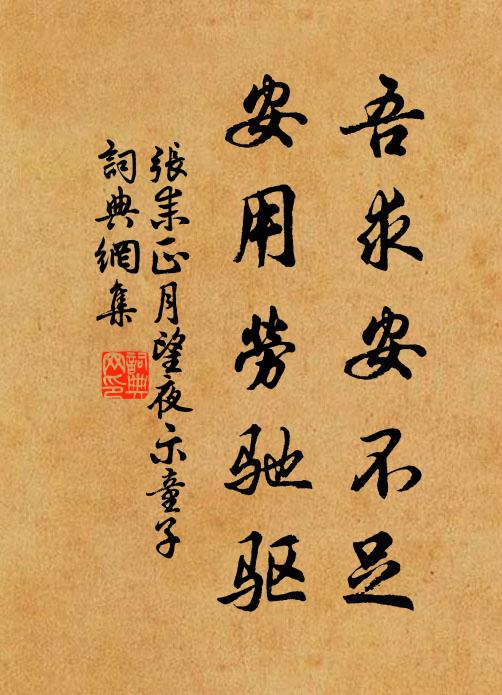 吾求安不足
安用勞驰驱
張耒正月望夜示童子
詞典網集
詞典
网印